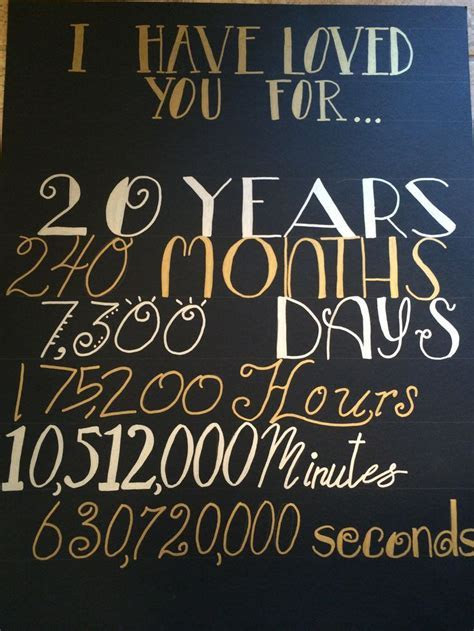 I HAVE LOVED
YOU FOR...
20 YEARS
240 MONTHS
7,300 DAYS
175,200 Hours
10,512,000 Minutes
630,720,000 seconds